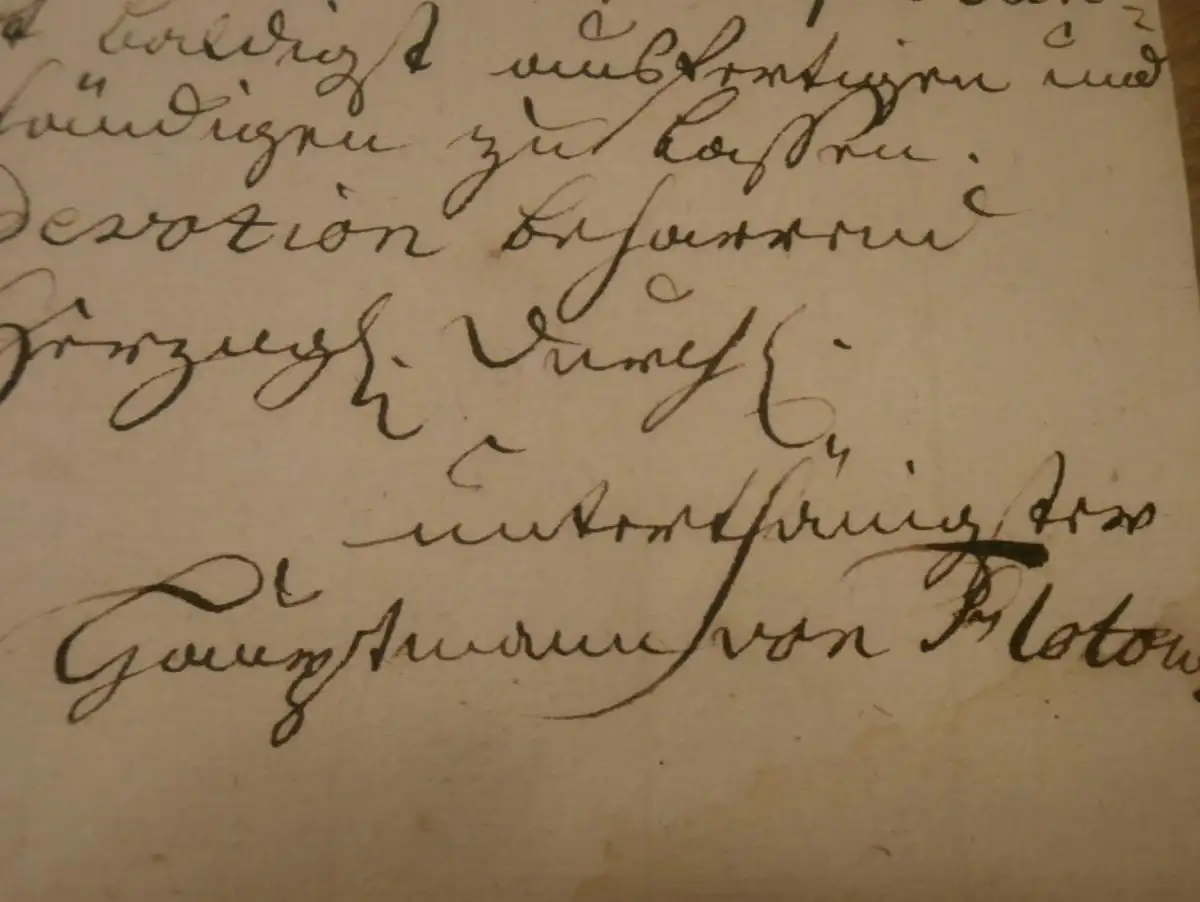 baldigst ausfertigen und
händigen zu lassen.
Devotion beharrend
Herzogl. Durchl.
unterthänigster
Hauptmann von Flotow